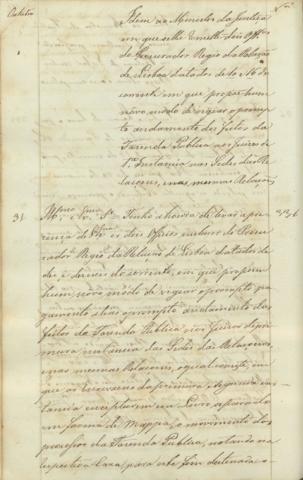 Idem ao Ministro da Justiça
em que se lhe remette dois Off.os
do Procurador Regio da Relação
de Lisboa datados de 10 e 16 do
corrente em que propoem hum
novo modo de vigiar o prompto
andamento dos feitos da
Fazenda Publica nos Juizos de
1.ª Instancia nas Sedes das Re-
lacoens, e nas mesmas Relaçoens
31 Ill.mo e Ex.mo Sr. Tenho a honra de levar á pre-
sença de V. Ex.ª os dois Officios inclusos do Procu-
rador Regio da Relação de Lisboa datados de
dez e dezeseis do corrente, em que propoem
hum novo modo de vigiar o prompto
andamento dos
feitos da Fazenda Publica nos Juizos de pri-
meira instancia das Sedes das Relações,
e nas mesmas Relacoens, o qual consiste, em
que os Escrivaens da primeira, e segunda ins-
tancia escriptorem em Livro
em forma de Mappa, o movimento dos
processos da Fazenda Publica, notando na
respectiva Casa, para este fim destinada o